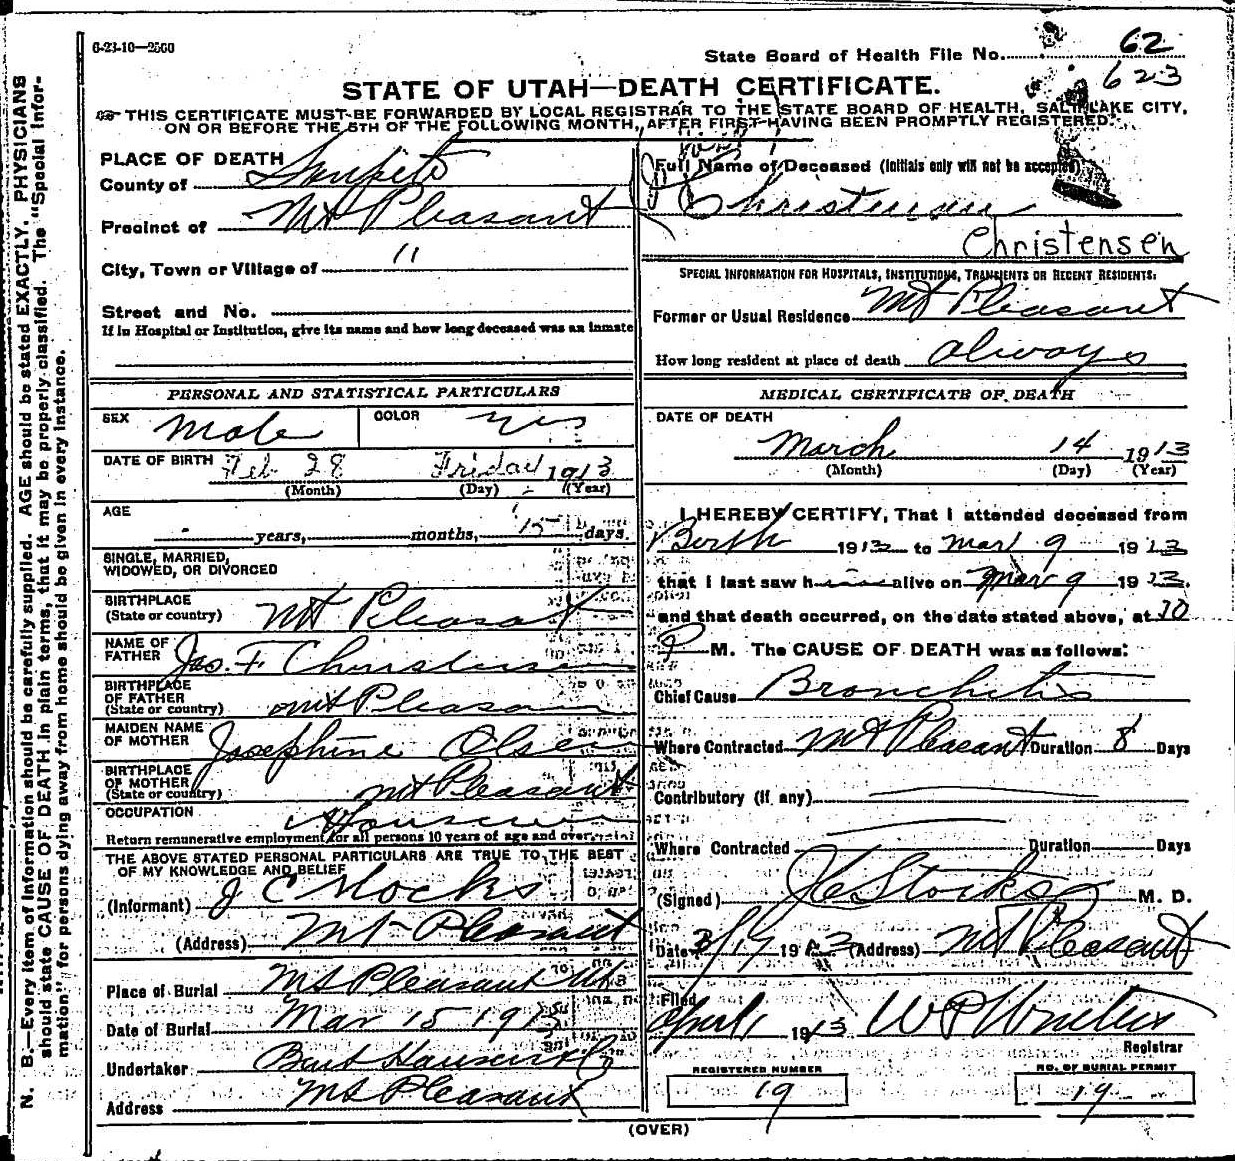 6-23-10—2500
State Board of Health File No. 62
623
STATE OF UTAH—DEATH CERTIFICATE.
THIS CERTIFICATE MUST BE FORWARDED BY LOCAL REGISTRAR TO THE STATE BOARD OF HEALTH, SALT LAKE CITY,
ON OR BEFORE THE 5TH OF THE FOLLOWING MONTH, AFTER FIRST HAVING BEEN PROMPTLY REGISTERED.
PLACE OF DEATH
County of Sanpete
Precinct of Mt Pleasant
City, Town or Village of "
Street and No.
If in Hospital or Institution, give its name and how long deceased was an inmate
Full Name of Deceased (Initials only will not be accepted)
Christensen
Christensen
SPECIAL INFORMATION FOR HOSPITALS, INSTITUTIONS, TRANSIENTS OR RECENT RESIDENTS.
Former or Usual Residence Mt Pleasant
How long resident at place of death always
PERSONAL AND STATISTICAL PARTICULARS
SEX Male COLOR
DATE OF BIRTH Feb 28 Friday 1913
(Month) (Day) (Year)
AGE
- years, months, 15 days.
SINGLE, MARRIED,
WIDOWED, OR DIVORCED
BIRTHPLACE
(State or country) Mt Pleasant
NAME OF
FATHER Jas. F. Christensen
BIRTHPLACE
OF FATHER
(State or country) Mt Pleasant
MAIDEN NAME
OF MOTHER Josephine Olsen
BIRTHPLACE
OF MOTHER
(State or country) Mt Pleasant
OCCUPATION
Return remunerative employment for all persons 10 years of age and over
THE ABOVE STATED PERSONAL PARTICULARS ARE TRUE TO THE BEST
OF MY KNOWLEDGE AND BELIEF
(Informant) J C Stocks
(Address) Mt Pleasant
Place of Burial Mt Pleasant
Date of Burial Mar 15 1913
Undertaker
Address Mt Pleasant
MEDICAL CERTIFICATE OF DEATH
DATE OF DEATH
March 14 1913
(Month) (Day) (Year)
I HEREBY CERTIFY, That I attended deceased from
Birth 1913 to Mar 9 1913
that I last saw him alive on Mar 9 1913.
and that death occurred, on the date stated above, at 10
P M. The CAUSE OF DEATH was as follows:
Chief Cause Bronchitis
Where Contracted Mt Pleasant Duration 8 Days
Contributory (if any)
Where Contracted Duration Days
(Signed) J C Stocks M. D.
Date 1913 (Address) Mt Pleasant
Filed
April 1 1913
Registrar
REGISTERED NUMBER
19
NO. OF BURIAL PERMIT
19
(OVER)
N. B.—Every item of information should be carefully supplied. AGE should be stated EXACTLY. PHYSICIANS
should state CAUSE OF DEATH in plain terms, that it may be properly classified. The "Special Infor-
mation" for persons dying away from home should be given in every instance.